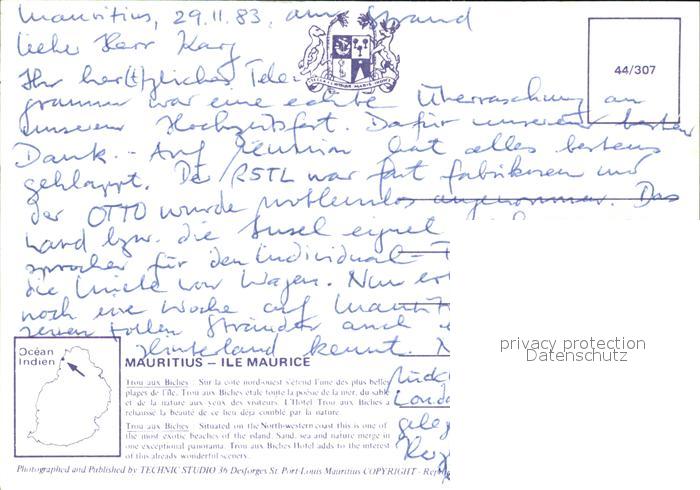 Mauritius, 29.11.83, am Strand
Lieber Herr Karg
Ihr her(t)zliches Tele-
gramm war eine echte Überraschung an
unserem Hochzeitsfest. Dafür unseren besten
Dank. - Auf Réunion hat alles bestens
geklappt. Der RSTL war fast fabrikneu und
der OTTO wurde problemlos angenommen. Das
Land bzw. die Insel eignet
für den Individual-
die Miete von Wagen. Nun
noch eine Woche auf Maurit
tollen Stränden auch
Hinterland kennt.
gele
44/307
privacy protection
Datenschutz
Océan
Indien
MAURITIUS – ILE MAURICE
Trou aux Biches : Sur la côte nord-ouest s'étend l'une des plus belles
plages de l'île. Trou aux Biches étale toute la poésie de la mer, du sable
et de la nature aux yeux des visiteurs. L'Hôtel Trou aux Biches a
rehaussé la beauté de ce lieu déjà comblé par la nature.
Trou aux Biches : Situated on the North-western coast this is one of
the most exotic beaches of the island. Sand, sea and nature merge in
one exceptional panorama. Trou aux Biches Hotel adds to the interest
of this already wonderful scenery.
Photographed and Published by TECHNIC STUDIO 36 Desforges St. Port-Louis Mauritius COPYRIGHT - Repr